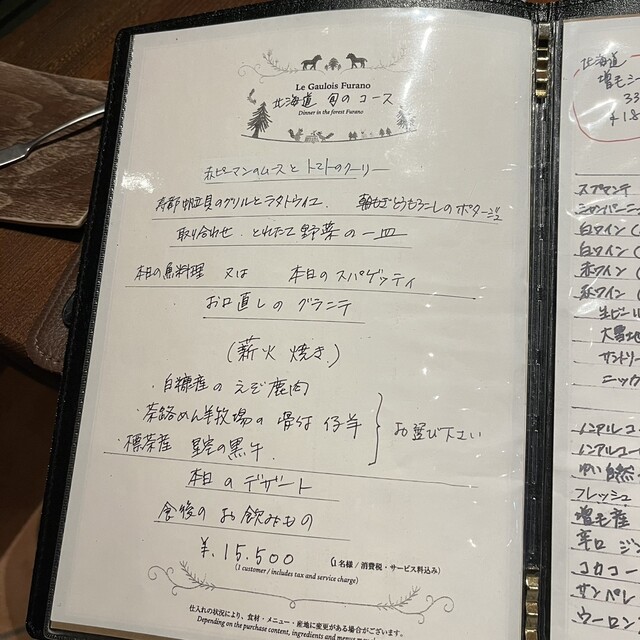 Le Gaulois Furano
北海道 旬の コース
Dinner in the forest Furano
赤ピーマンのムースと トマトのクーリー
帆立貝のグリルとラタトゥイユ. 朝もぎとうもろこしのポタージュ
取り合わせ. とれたて野菜の一皿
本日の魚料理 又は 本日のスパゲッティ
お口直しの グラニテ
(薪火 焼き)
・白糠産の えぞ鹿肉
・茶路めん羊牧場の 骨付 仔羊
・標茶産 星空の黒牛.
お選び下さい
本日 の デザート
食後の お飲みもの
¥.15.500 (1名様 / 消費税・サービス料込み)
(1 customer / includes tax and service charge)
仕入れの状況により、食材・メニュー・産地に変更がある場合がございます。
Depending on the purchase content, ingredients and menus may
北海道
増毛シー
スプマンテ
シャンパーニ
白ワイン (
白ワイン (
赤ワイン (
赤ワイン (
生ビール
大黒地
サントリー
ニッカ
ノンアルコー
ノンアルコール
フレッシュ
増毛産
辛口 ジン
コカコー
サンペレ
ウーロン